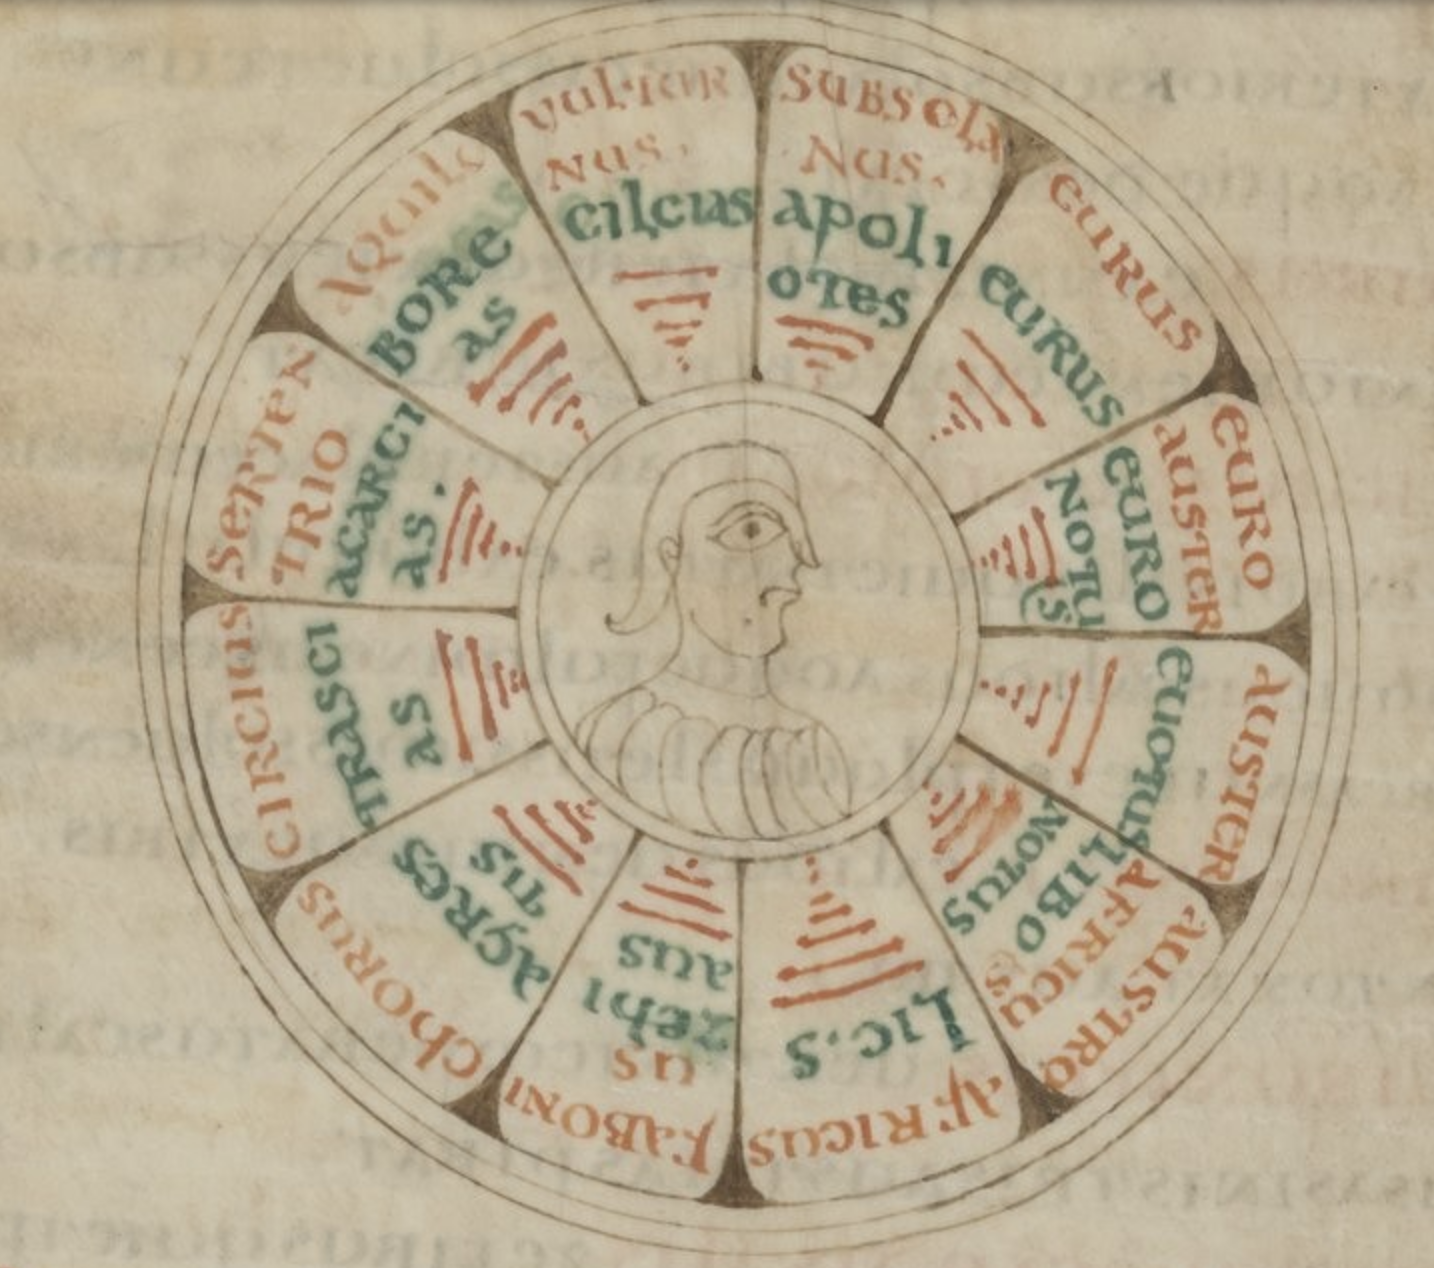 SUBSOLA
NUS.
apoli
otes
eurus
eurus
euro
auster
euro
notu
(s
auster
euotus
austro
africu
s
libo
notus
africus
Lic.s
faboni
us
zephi
aus
chorus
agres
tis
circius
trasci
as
septen
trio
acarci
as.
aquilo
bore
as
vultur
nus.
cilcias